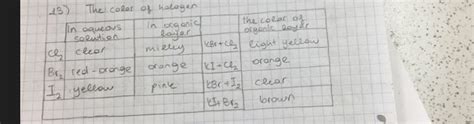 15) The color of halogen
In aqueous solution | In organic layer | | the color of organic layer
Cl2 | clear | milky | KBr+Cl2 | light yellow
Br2 | red-orange | orange | KI+Cl2 | orange
I2 | yellow | pink | KBr+I2 | clear
KI+Br2 | brown